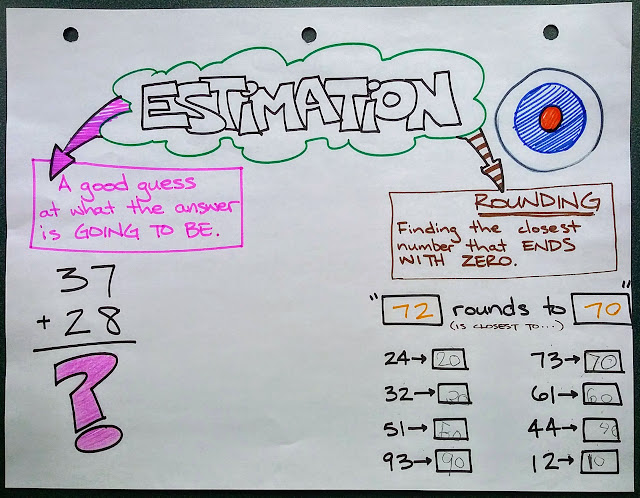 ESTIMATION
A good guess
at what the answer
is GOING TO BE.
37
+ 28
?
ROUNDING
Finding the closest
number that ENDS
WITH ZERO.
"72 rounds to 70"
(IS CLOSEST TO...)
24→20 73→70
32→ 61→60
51→50 44→40
93→90 12→10